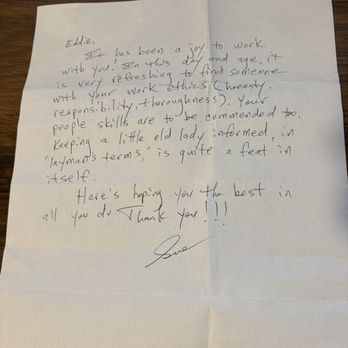 Eddie,
It has been a joy to work
with you! In this day and age, it
is very refreshing to find someone
with your work ethics (honesty,
responsibility, thoroughness). Your
people skills are to be commended too.
Keeping a little old lady informed, in
"layman's terms," is quite a feat in
itself.
Here's hoping you the best in
all you do. Thank you!!!